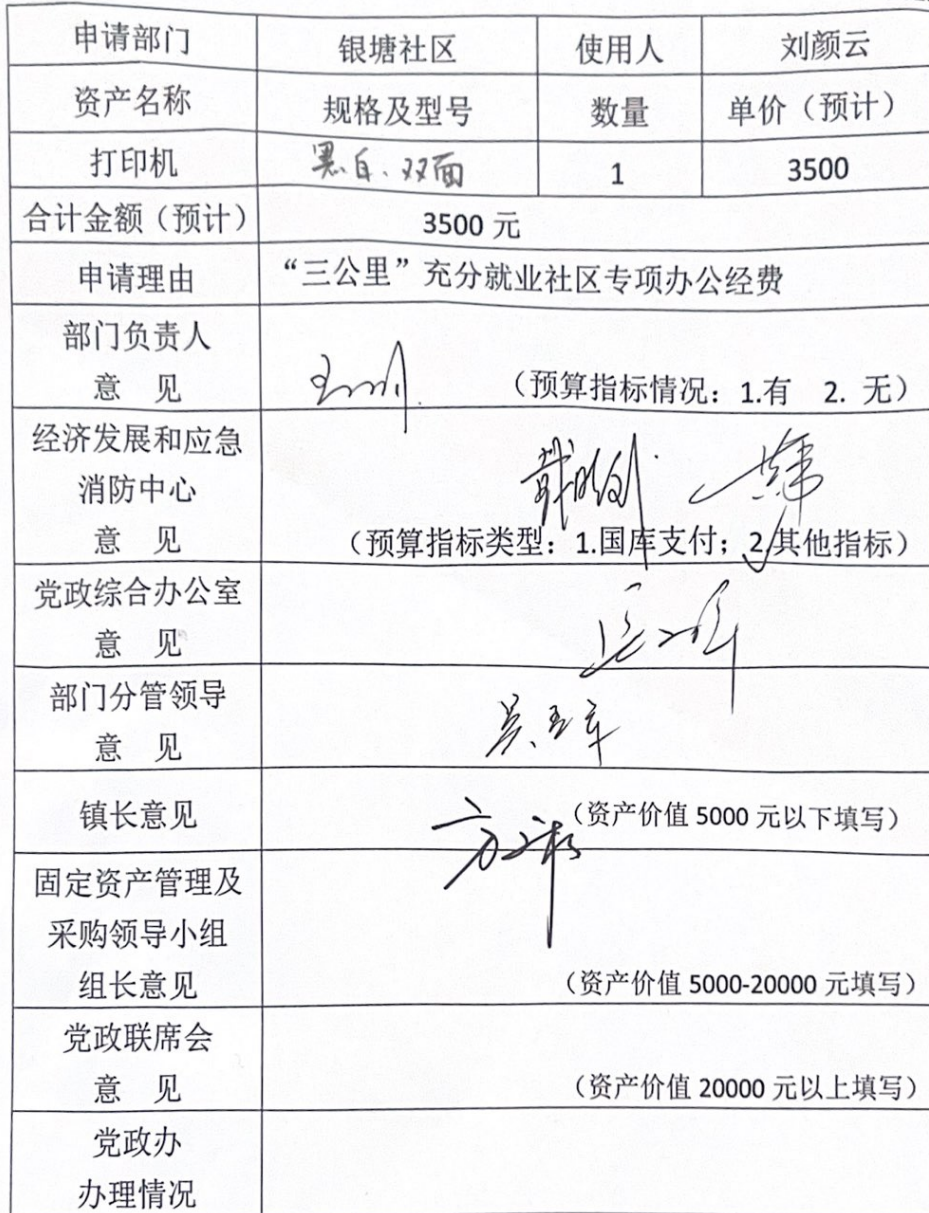 申请部门 银塘社区 使用人 刘颜云
资产名称 规格及型号 数量 单价（预计）
打印机 黑白、双面 1 3500
合计金额（预计） 3500 元
申请理由 “三公里”充分就业社区专项办公经费
部门负责人
意 见 （预算指标情况：1.有 2. 无）
经济发展和应急
消防中心
意 见 （预算指标类型：1.国库支付；2.其他指标）
党政综合办公室
意 见
部门分管领导
意 见
镇长意见 （资产价值 5000 元以下填写）
固定资产管理及
采购领导小组
组长意见 （资产价值 5000-20000 元填写）
党政联席会
意 见 （资产价值 20000 元以上填写）
党政办
办理情况